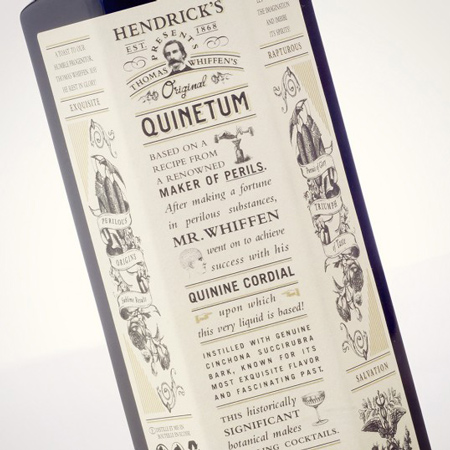 HENDRICK'S
EST. 1868
PRESENTS
THOMAS WHIFFEN'S
Original
QUINETUM
BASED ON A
RECIPE FROM
A RENOWNED
MAKER OF PERILS.
After making a fortune
in perilous substances,
MR. WHIFFEN
went on to achieve
success with his
QUININE CORDIAL
upon which
this very liquid is based!
INSTILLED WITH GENUINE
CINCHONA SUCCIRUBRA
BARK, KNOWN FOR ITS
MOST EXQUISITE FLAVOR
AND FASCINATING PAST,
THIS historically
SIGNIFICANT
botanical makes
COCKTAILS.
A TOAST TO OUR
HUMBLE PROGENITOR,
THOMAS WHIFFEN. MAY
HE REST IN GLORY!
EXQUISITE
PERILOUS
ORIGINS
THE IMAGINATION
AND INSPIRE
ITS SPIRITS!
RAPTUROUS
TRIUMPH
of Taste
SALVATION